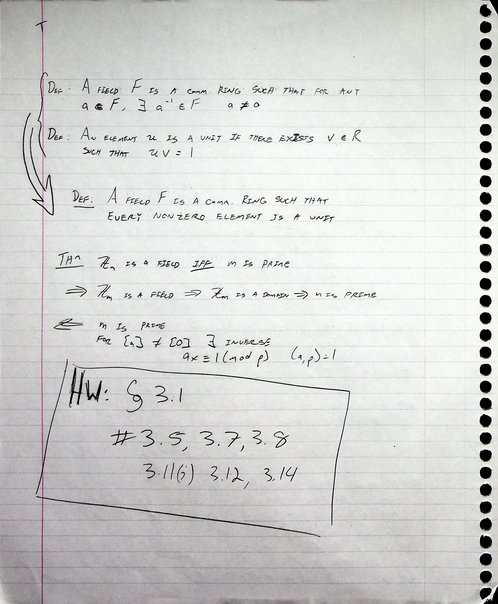 T
DEF: A FIELD F IS A COMM. RING SUCH THAT FOR ANY
a ∈ F, ∃ a⁻¹ ∈ F a ≠ 0
DEF: AN ELEMENT u IS A UNIT IF THERE EXISTS V ∈ R
SUCH THAT uV = 1
DEF: A FIELD F IS A COMM. RING SUCH THAT
EVERY NONZERO ELEMENT IS A UNIT
THᵐ ℤₘ IS A FIELD IFF m IS PRIME
⇒ ℤₘ IS A FIELD ⇒ ℤₘ IS A DOMAIN ⇒ m IS PRIME
⇐ m IS PRIME
FOR [a] ≠ [0] ∃ INVERSE
ax ≡ 1 (mod p) (a,p)=1
HW: § 3.1
# 3.5, 3.7, 3.8
3.11(i) 3.12, 3.14